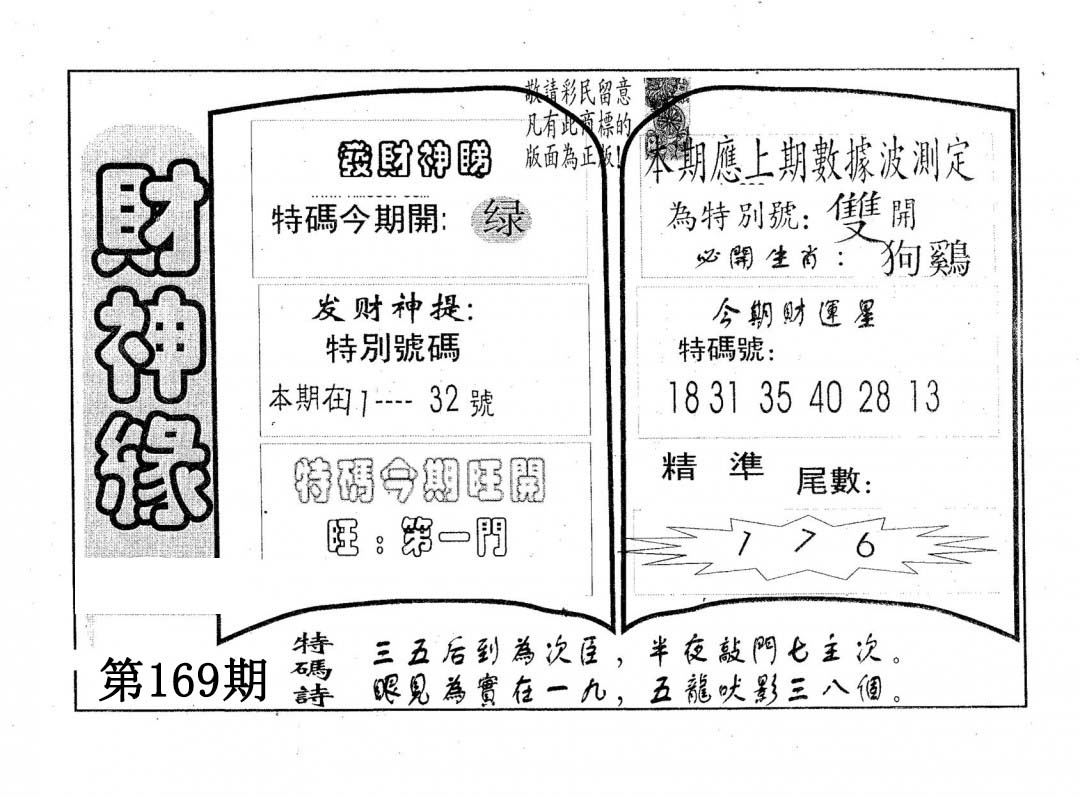 財神緣
第169期
敬請彩民留意
凡有此商標的
版面為正版!
發財神睇
特碼今期開: 绿
发财神提:
特別號碼
本期在11---- 32號
特碼今期旺開
旺:第一門
本期應上期數據波測定
為特別號:雙開
必開生肖: 狗鷄
今期財運星
特碼號:
18 31 35 40 28 13
精準 尾數:
1 7 6
特碼詩
三五后到為次臣,半夜敲門七主次。
眼見為實在一九,五龍吠影三八個。